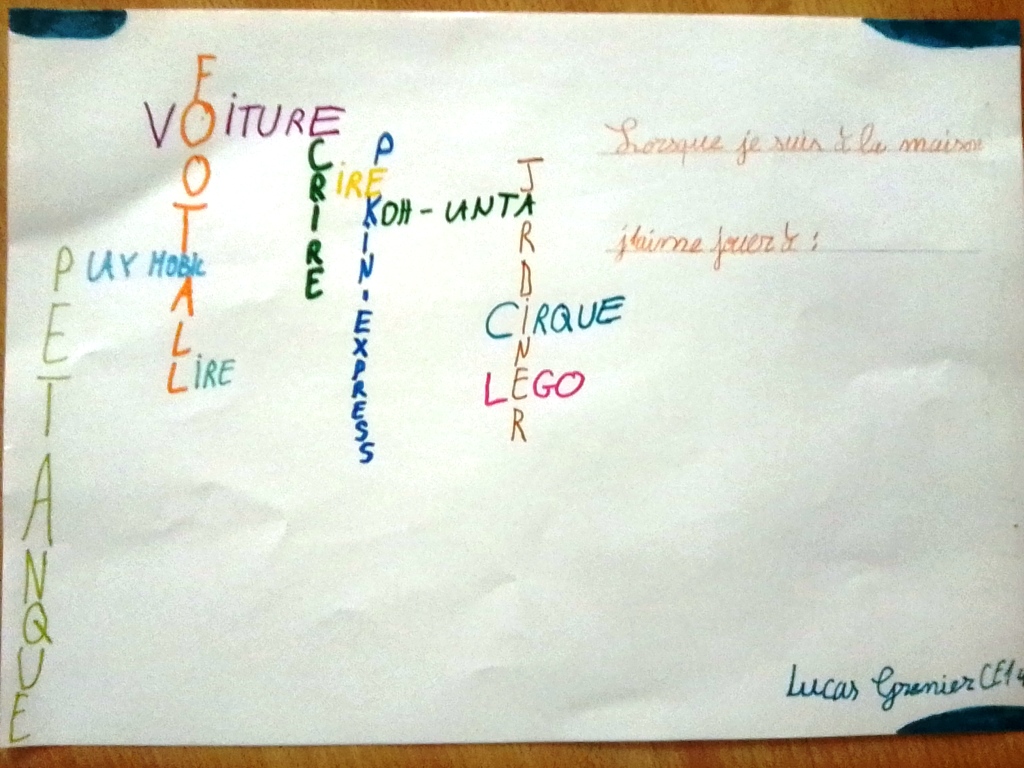 FOOTALL
VOITURE
ECRIRE
RIRE
PEKIN-EXPRESS
KOH-LANTA
JARDINER
PLAYMOBIL
PETANQUE
CIRQUE
LIRE
LEGO
Lorsque je suis à la maison
j'aime jouer à :
Lucas Grenier CE1